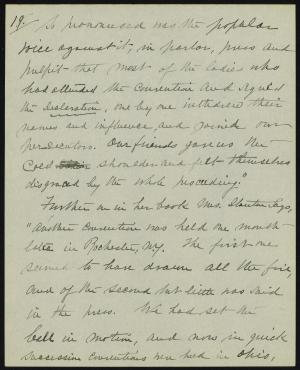 19.
So pronounced was the popular
voice against it, in parlor, press and
pulpit that most of the ladies who
had attended the Convention and signed
the Declaration, one by one withdrew their
names and influence, and joined our
persecutors. Our friends gave us the
cold shoulder and felt themselves
disgraced by the whole proceeding."
Further on in her book Mrs. Stanton says,
"Another Convention was held one month
later in Rochester, N.Y. The first one
seemed to have drawn all the fire,
and of the second but little was said
in the press. We had set the
ball in motion, and now in quick
succession Conventions were held in Ohio,